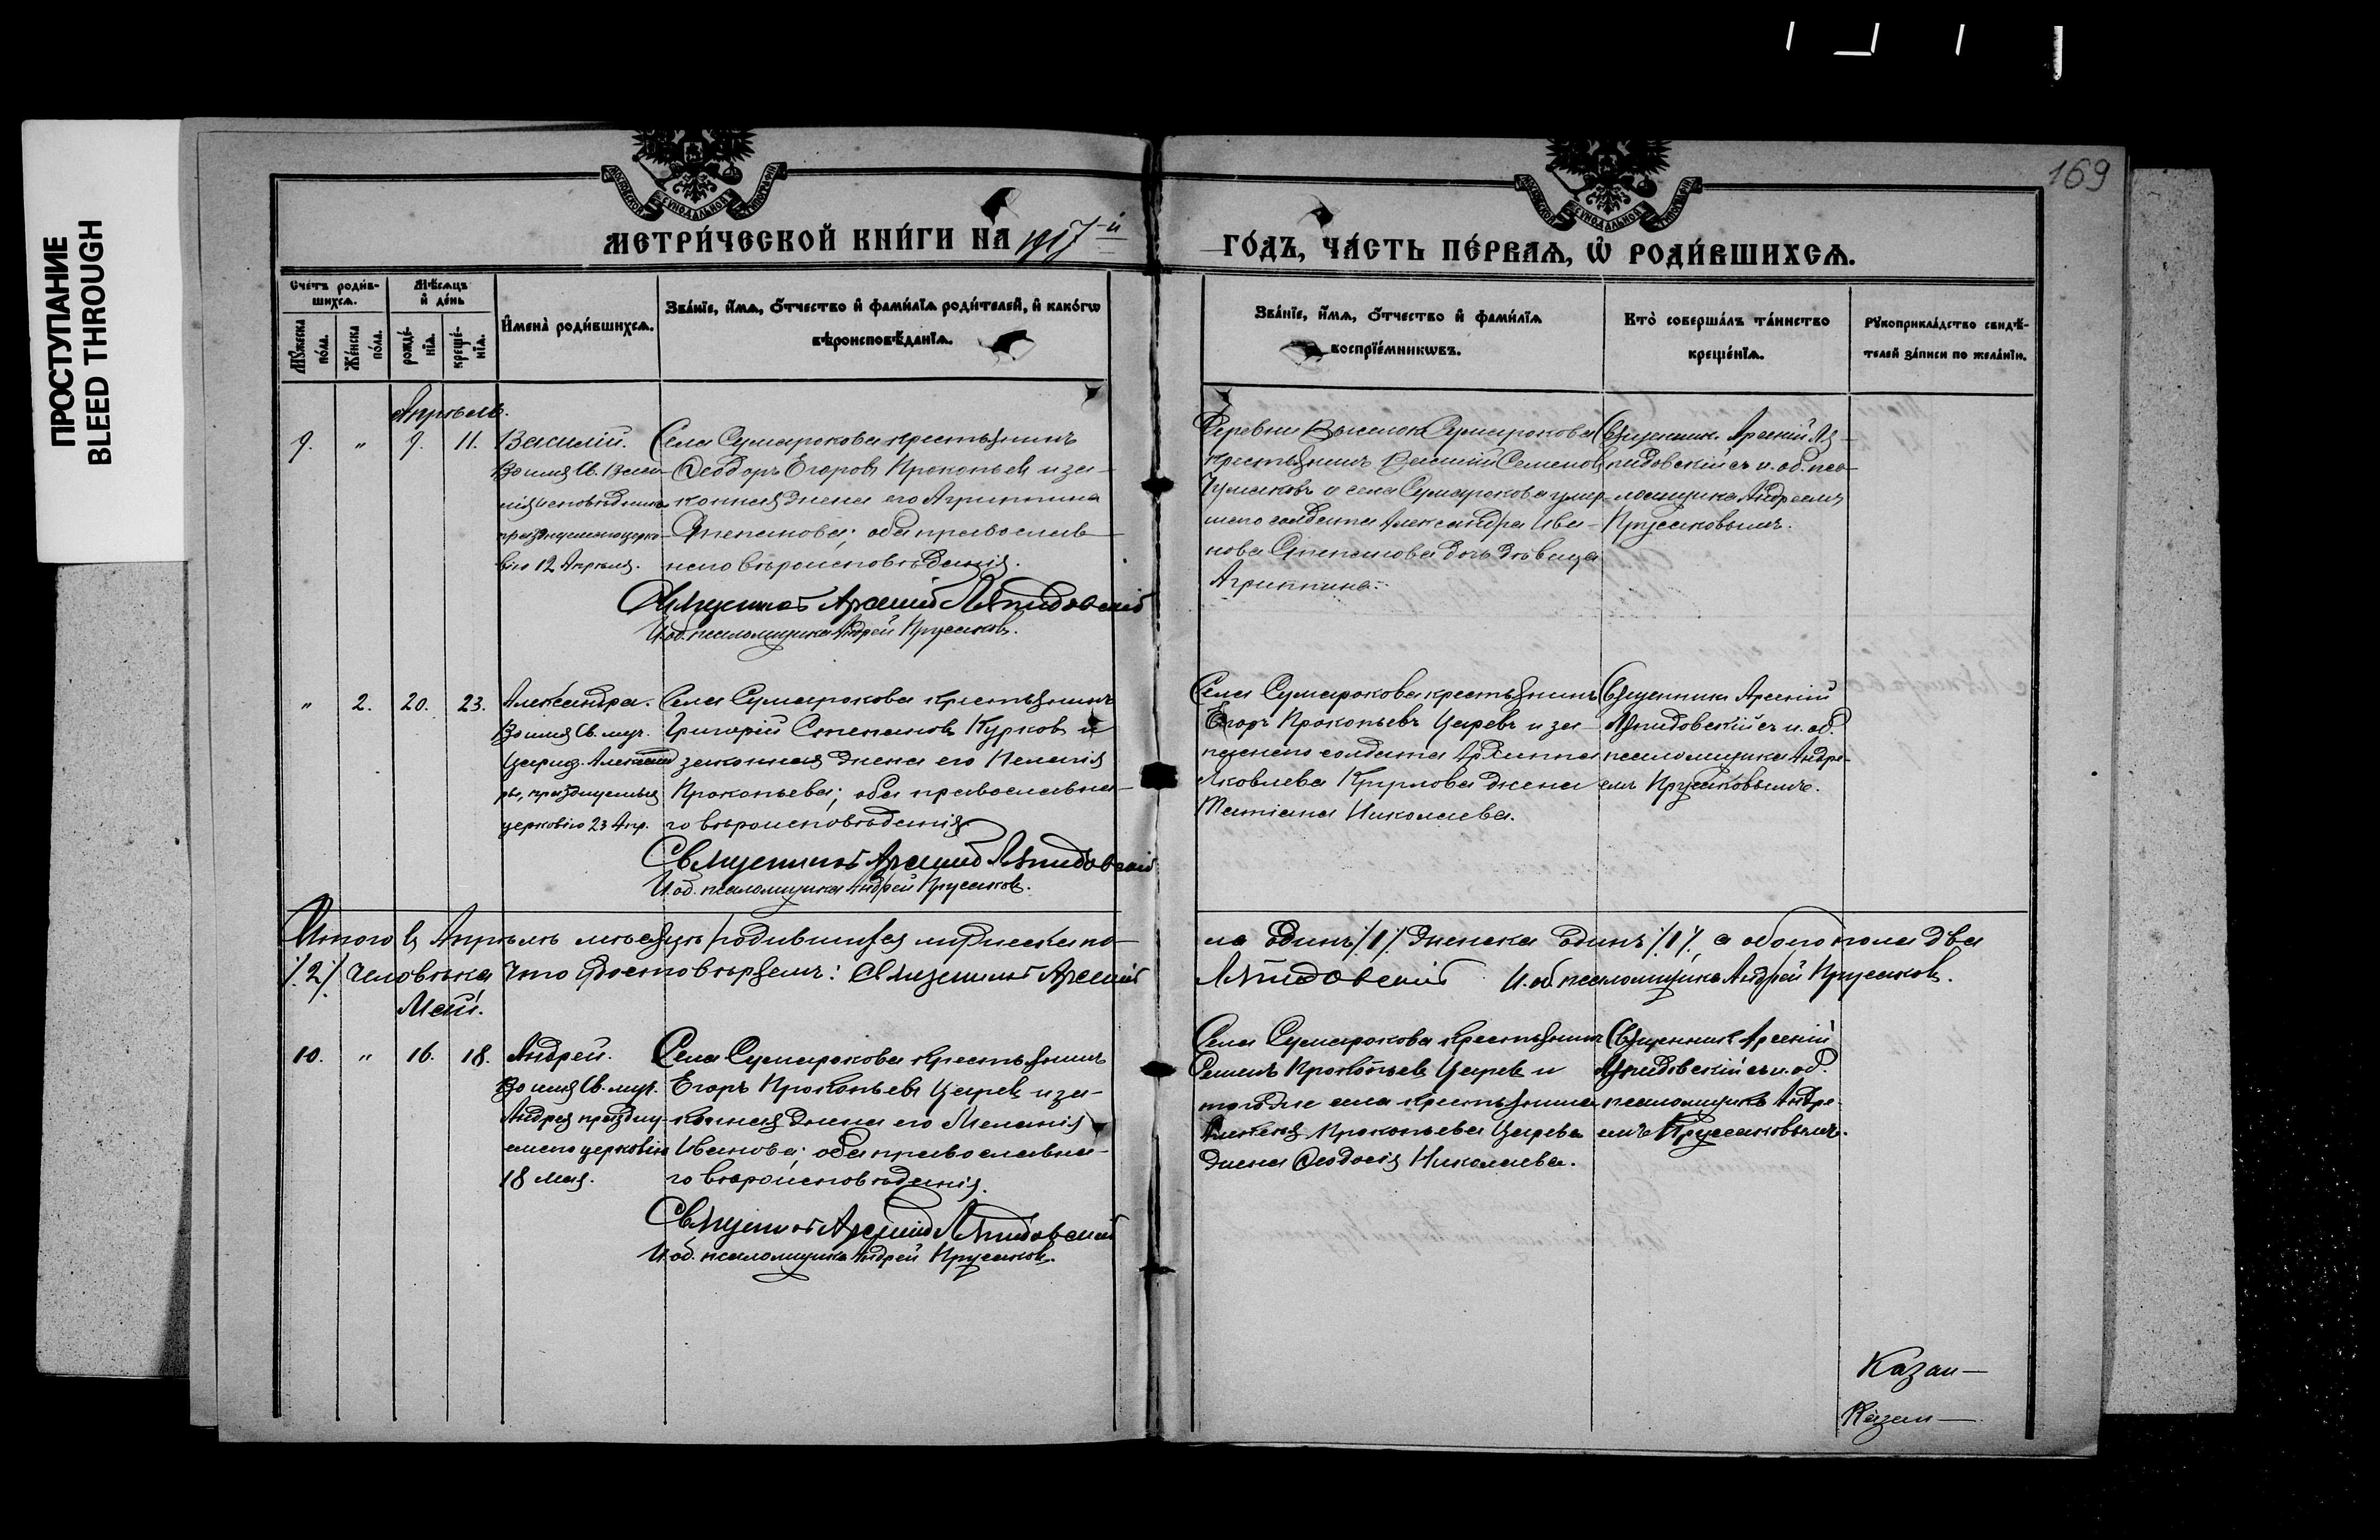 ПРОСТУПАНИЕ
BLEED THROUGH
169
МОСКОВСКОЙ СУНОДАЛЬНОЙ ТИПОГРАФІИ
МОСКОВСКОЙ СУНОДАЛЬНОЙ ТИПОГРАФІИ
МЕТРИ́ЧЕСКОЙ КНИ́ГИ НА 1917-й
ГО́ДЪ, ЧА́СТЬ ПЕ́РВАѦ, Ѡ҆ РОДИ́ВШИХСѦ.
Сче́тъ роди́в-
шихсѧ.
Мѣ́сѧцъ
и҆ де́нь
Мꙋ́жеска
по́ла.
Же́нска
по́ла.
рожде́-
нїѧ.
креще́-
нїѧ.
И҆мена̀ роди́вшихсѧ.
Зва́нїе, и҆́мѧ, ѻ҆́тчество и҆ фами́лїѧ роди́телей, и҆ како́гѡ
вѣроисповѣ́данїѧ.
Зва́нїе, и҆́мѧ, ѻ҆́тчество и҆ фами́лїѧ
воспрїе́мникѡвъ.
Кто̀ соверша́лъ та́инство
креще́нїѧ.
Рꙋкоприкла́дство свидѣ́-
телей за́писи по жела́нїю.
Апрѣль.
9. „ 9. 11.
Василій.
Во имя Св. Васи-
лія исповѣдника
празднуемаго церко-
вію 12 Апрѣля.
Села Сумарокова крестьянинъ
Ѳеодоръ Егоровъ Прокопьевъ и за-
конная жена его Агриппина
Степанова; оба православ-
наго вѣроисповѣданія.
Священникъ Арсеній Ляпидовскій
И. об. псаломщика Андрей Прусаковъ.
Деревни Выселокъ Сумарокова
крестьянинъ Василій Семеновъ
Чумаковъ и села Сумарокова умер-
шаго солдата Александра Ива-
нова Степанова дочь дѣвица
Агриппина.
Священникъ Арсеній Ля-
пидовскій съ и. об. пса-
ломщика Андреемъ
Прусаковымъ.
„ 2. 20. 23.
Александра.
Во имя Св. муч.
Цариц. Александ
ры, празднуемыя
церковію 23 Апр.
Села Сумарокова крестьянинъ
Григорій Степановъ Курковъ и
законная жена его Пелагія
Прокопьева; оба православна-
го вѣроисповѣданія
Священникъ Арсеній Ляпидовскій
И. об. псаломщика Андрей Прусаковъ.
Села Сумарокова крестьянинъ
Егоръ Прокопьевъ Царевъ и за-
паснаго солдата Архиппа
Яковлева Курлова жена
Татіана Николаева.
Священникъ Арсеній
Ляпидовскій съ и. об.
псаломщика Андре-
емъ Прусаковымъ.
Итого въ Апрѣлѣ мѣсяцѣ родившихся мужеска по-
ла одинъ /1/ женска одинъ /1/, а обоего пола два
/2/ человѣка Что удостовѣряемъ: Священникъ Арсеній
Ляпидовскій И. об. псаломщика Андрей Прусаковъ.
Май.
10. „ 16. 18.
Андрей.
Во имя Св. муч.
Андрея праздну-
емаго церковію
18 мая.
Села Сумарокова крестьянинъ
Егоръ Прокопьевъ Царевъ и за-
конная жена его Меланія
Иванова; оба православна-
го вѣроисповѣданія.
Священникъ Арсеній Ляпидовскій
И. об. псаломщика Андрей Прусаковъ.
Села Сумарокова крестьянинъ
Семенъ Прокопьевъ Царевъ и
того же села крестьянина
Прокопьева Царева
жена Ѳеодосія Николаева.
Священникъ Арсеній
Ляпидовскій съ и. об.
псаломщика Андре-
емъ Прусаковымъ.
Казан—
Казан—